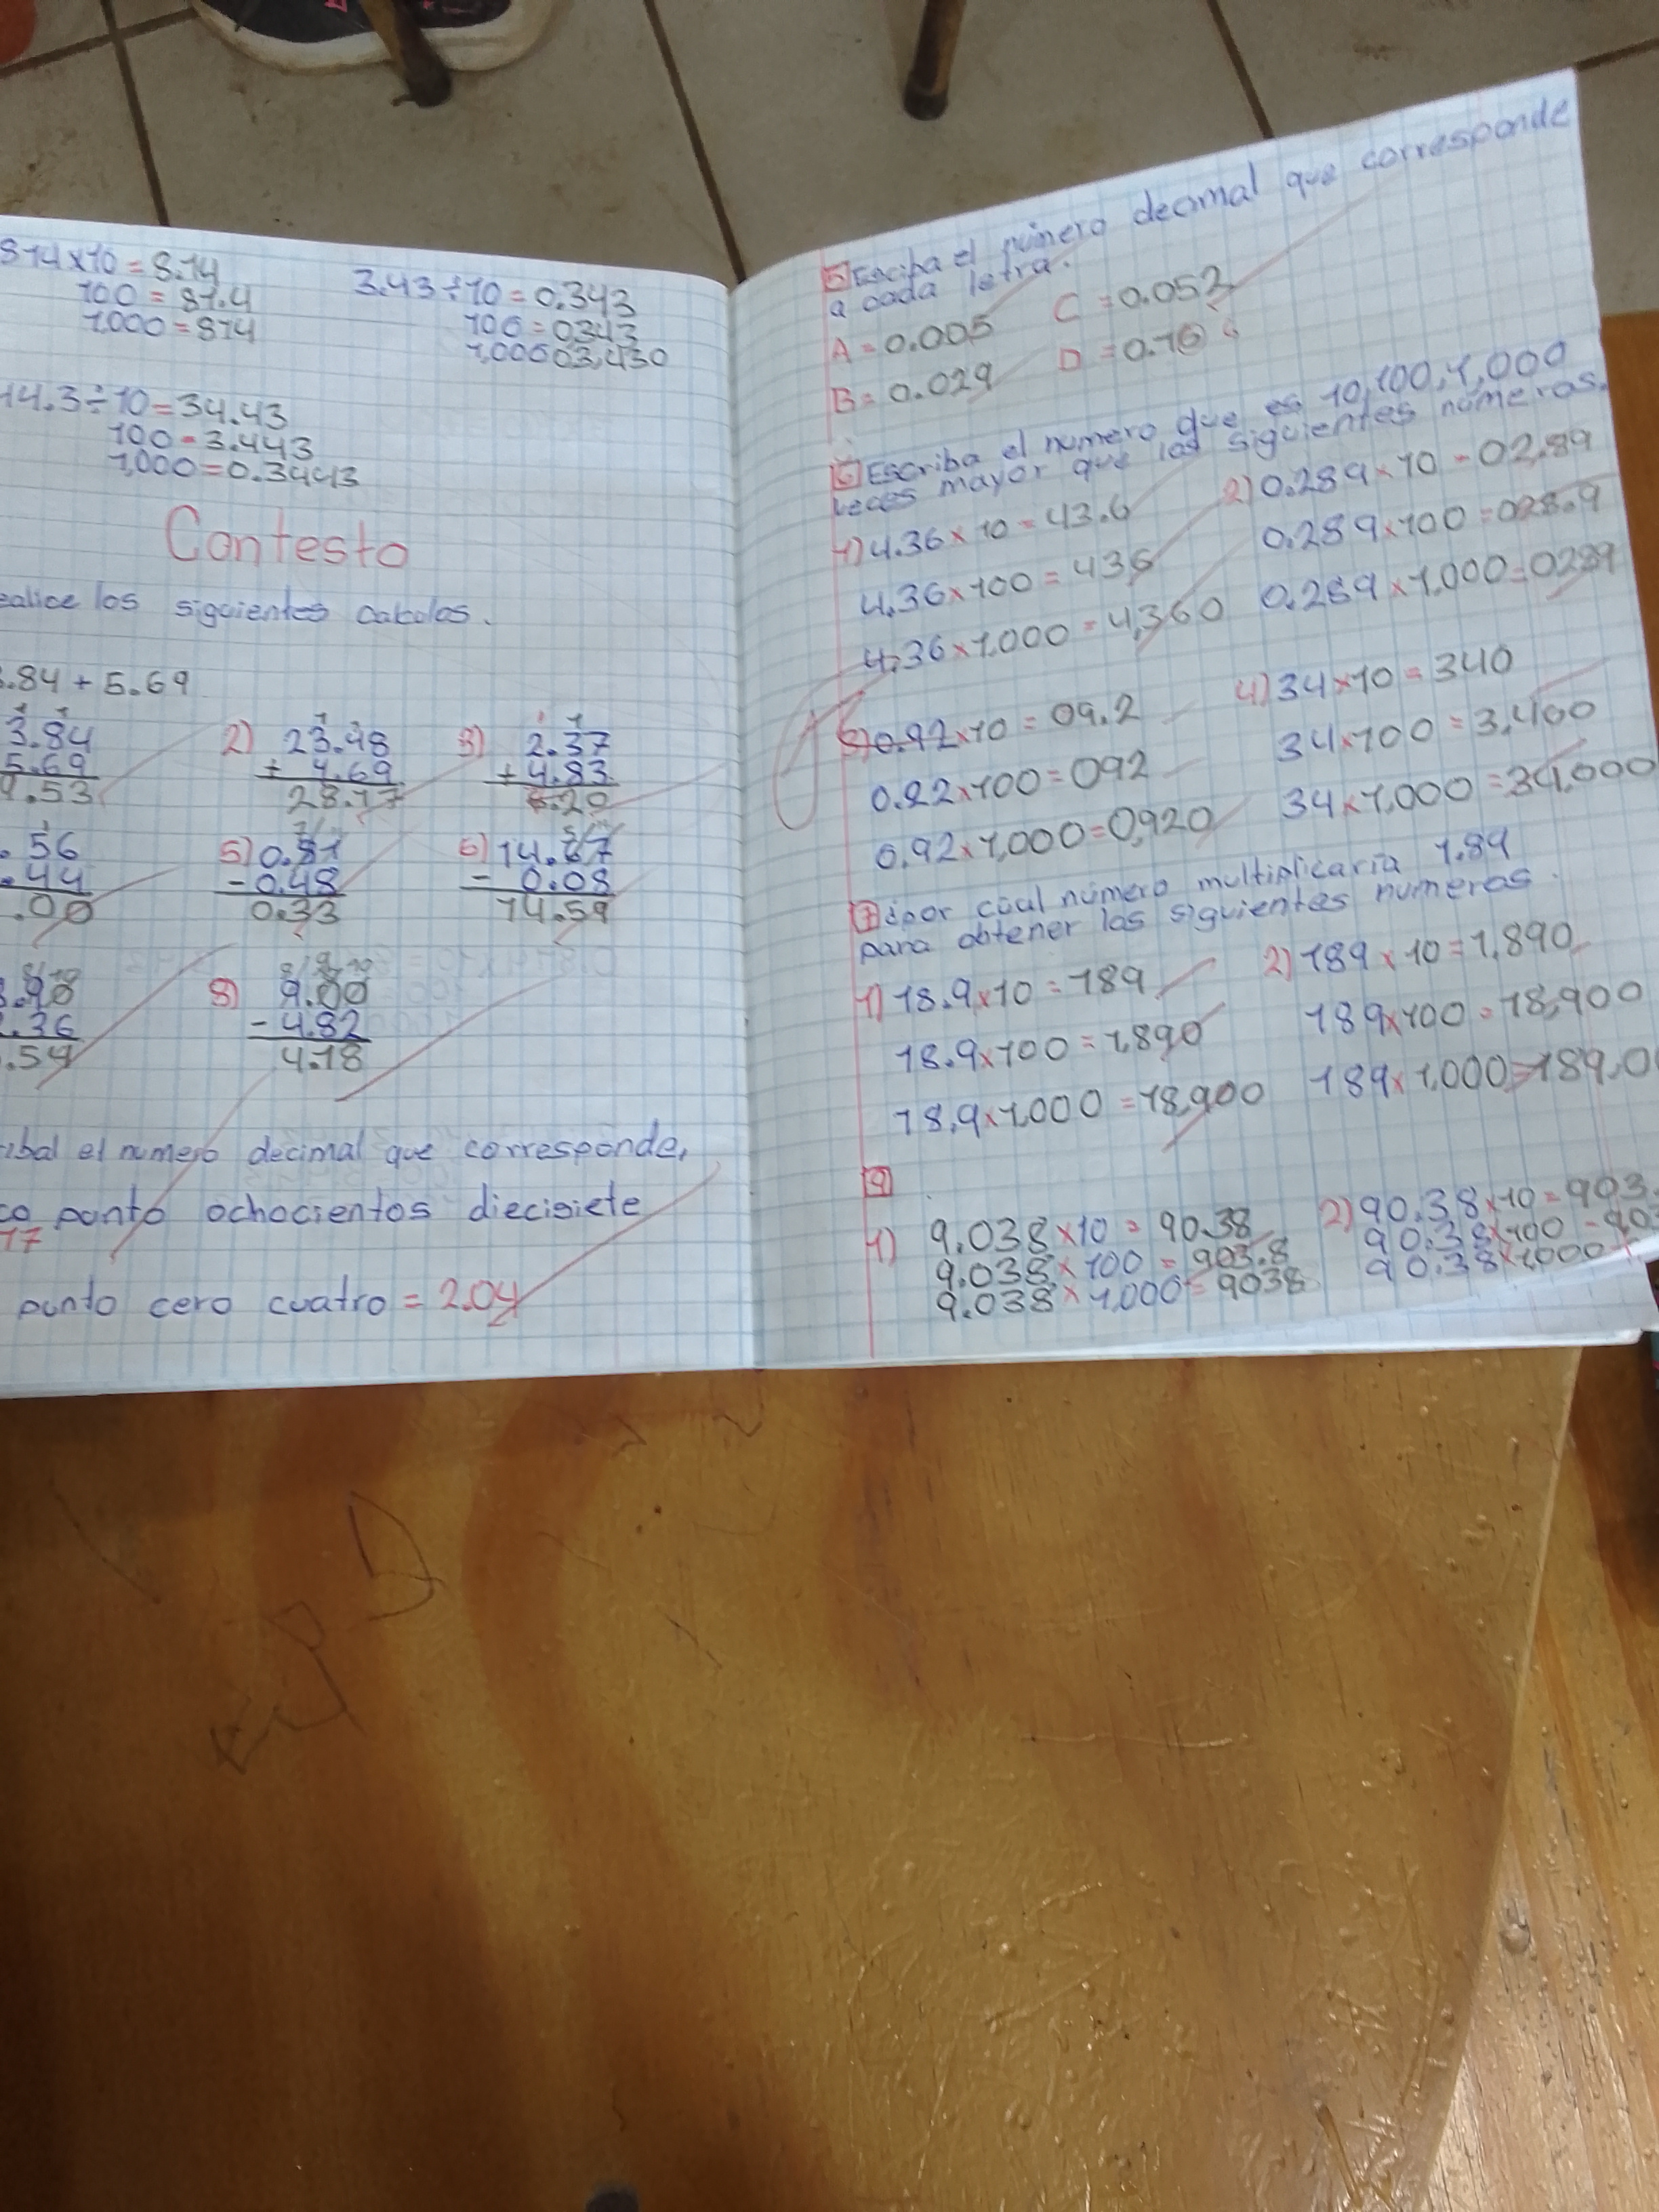 814×10 = 8.14
100 = 81.4
1,000 = 814
3.43÷10 = 0.343
100 = 0343
1,000 03,430
14.3÷10 = 34.43
100 = 3.443
1,000 = 0.3443
Contesto
ealice los siguientes calculos.
.84 + 5.69
1 1
3.84
5.69
9.53
2) 1
23.48
+ 4.69
28.17
3) 1 1
2.37
+ 4.83
6.20
1
. 56
.44
.00
5) 0.81
- 0.48
0.33
6) 14.67
- 0.08
14.59
8/10
.90
.36
.54
8) 8/9/10
9.00
- 4.82
4.18
ribal el numero decimal que corresponde,
co punto ochocientos diecisiete
17
punto cero cuatro = 2.04
5 Esciba el número decimal que corresponde
a cada letra.
A = 0.005 C = 0.052
B = 0.029 D = 0.16
6 Escriba el numero que es 10,100,1,000
veces mayor que los siguientes números.
1) 4.36 × 10 = 43.6
4.36 × 100 = 436
4.36 × 1,000 = 4,360
2) 0.289 × 10 = 02.89
0.289 × 100 = 028.9
0.289 × 1,000 = 0289
3) 0.92 × 10 = 09.2
0.92 × 100 = 092
0.92 × 1,000 = 0,920
4) 34 × 10 = 340
34 × 100 = 3,400
34 × 1,000 = 34,000
7 ¿por cúal número multiplicaria 1.89
para obtener los siguientes numeros.
1) 18.9 × 10 = 189
18.9 × 100 = 1,890
18.9 × 1,000 = 18,900
2) 189 × 10 = 1,890
189 × 100 = 18,900
189 × 1,000 = 189,0
9
1) 9.038 × 10 = 90.38
9.038 × 100 = 903.8
9.038 × 1,000 = 9038
2) 90.38 × 10 = 903.
90.38 × 100 = 903
90.38 × 1,000